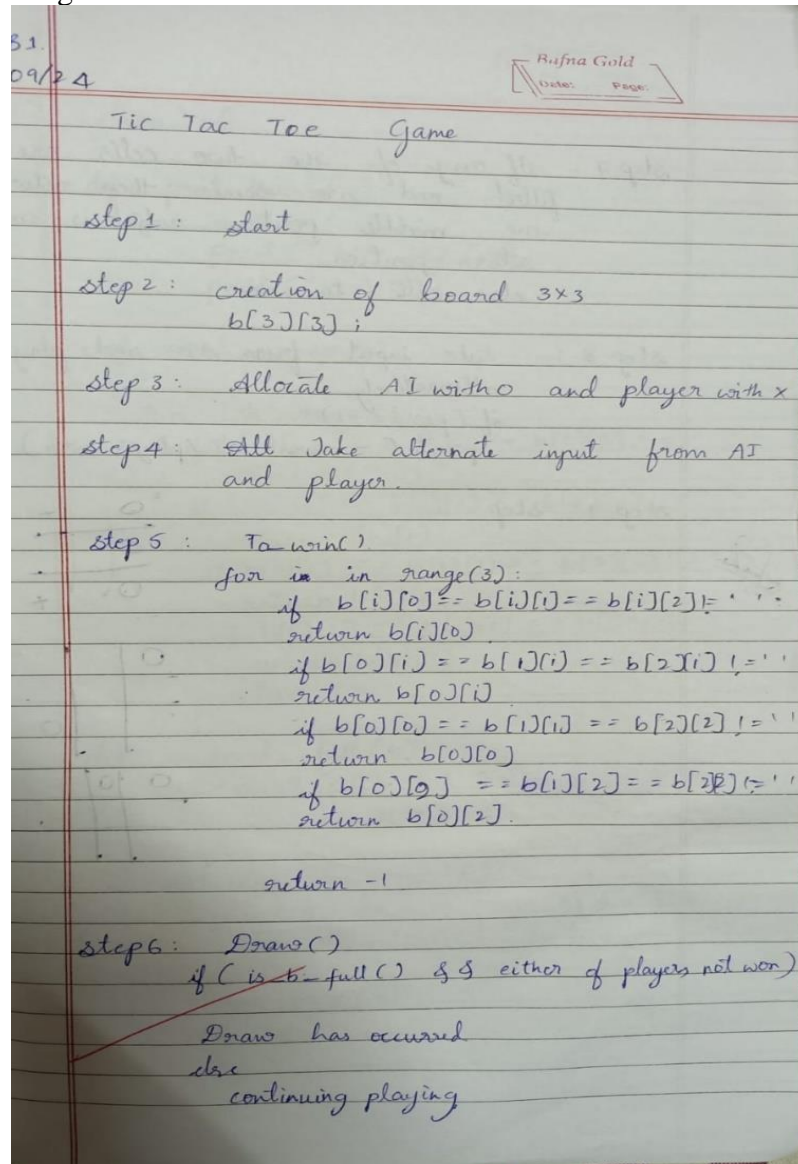 31.
09/24
Bafna Gold
Date: Page:
Tic Tac Toe Game
step 1 : start
step 2 : creation of board 3×3
b[3][3] ;
step 3 : Allocate AI with O and player with X
step 4 : Take alternate input from AI
and player.
step 5 : To win()
for in in range(3) :
if b[i][0] == b[i][1] == b[i][2] != ' ' :
return b[i][0]
if b[0][i] == b[1][i] == b[2][i] != ' '
return b[0][i]
if b[0][0] == b[1][1] == b[2][2] != ' '
return b[0][0]
if b[0][2] == b[1][2] == b[2][2] != ' '
return b[0][2].
return -1
step 6 : Draw()
if ( is_b_full() && either of players not won)
Draw has occurred
else
continuing playing